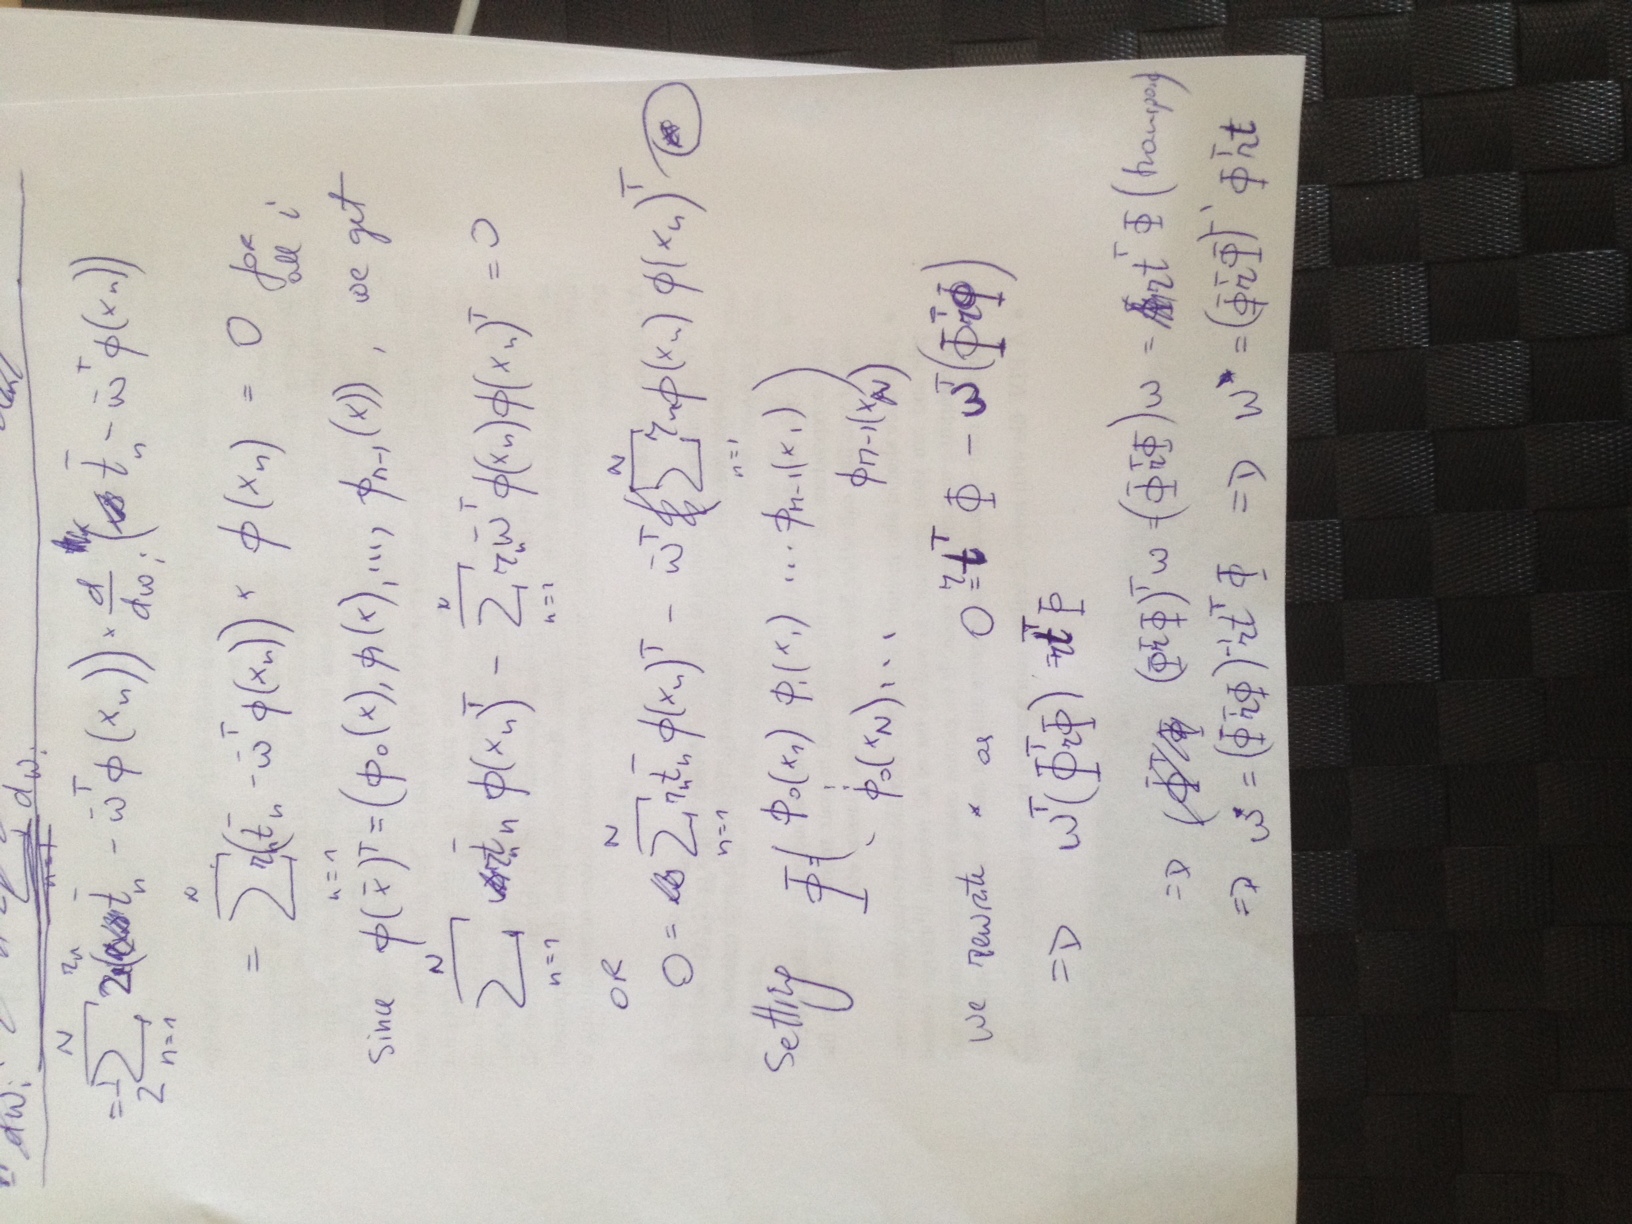 dw_i dw_i
n=1
= 1/2 Σ_{n=1}^{N} 2 r_n ( t̄_n - w̄^T φ(x_n)) * d/dw_i ( t̄_n - w̄^T φ(x_n))
= Σ_{n=1}^{N} r_n(t̄_n - w̄^T φ(x_n)) * φ(x_n) = 0 for all i
since φ(x̄)^T = (φ_0(x), φ_1(x), ..., φ_{n-1}(x)), we get
Σ_{n=1}^{N} r_n t̄_n φ(x_n)^T - Σ_{n=1}^{N} r_n w̄^T φ(x_n) φ(x_n)^T = 0
OR
0 = Σ_{n=1}^{N} r_n t̄_n φ(x_n)^T - w̄^T ( Σ_{n=1}^{N} r_n φ(x_n) φ(x_n)^T *
Setting Φ = ( φ_0(x_1) φ_1(x_1) ... φ_{n-1}(x_1)
⋮
φ_0(x_N), ... φ_{n-1}(x_N) )
we rewrite * as 0 = r t^T Φ - w^T (Φ^T r Φ)
=D w^T (Φ^T r Φ) = r t^T Φ
=D (Φ^T r Φ)^T w = (Φ^T r Φ) w = r t^T Φ (transpose)
=D w* = (Φ^T r Φ)^{-1} r t^T Φ =D w* = (Φ^T r Φ)^{-1} Φ^T r t